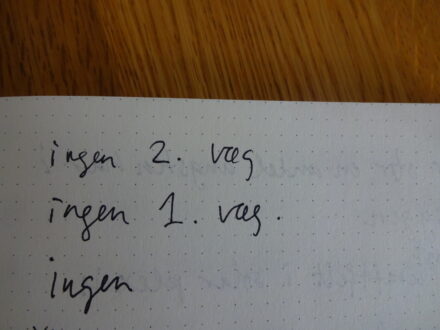 ingen 2. væg
ingen 1. væg.
ingen